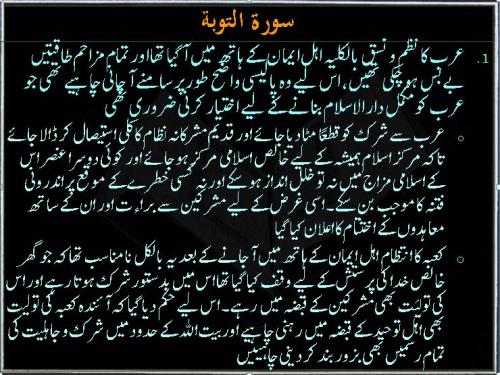 سورة التوبة
1. عرب کا نظم و نسق بالکلیہ اہل ایمان کے ہاتھ میں آگیا تھا اور تمام مزاحم طاقتیں
بے بس ہو چکی تھیں، اس لیے وہ پالیسی واضح طور پر سامنے آجانی چاہیے تھی جو
عرب کو مکمل دارالاسلام بنانے کے لیے اختیار کرنی ضروری تھی
○ عرب سے شرک کو قطعًا مٹا دیا جائے اور قدیم مشرکانہ نظام کا کلی استیصال کر ڈالا جائے
تاکہ مرکز اسلام ہمیشہ کے لیے خالص اسلامی مرکز ہو جائے اور کوئی دوسرا عنصر اس
کے اسلامی مزاج میں نہ تو خلل انداز ہو سکے اور نہ کسی خطرے کے موقع پر اندرونی
فتنہ کا موجب بن سکے۔ اسی غرض کے لیے مشرکین سے براءت اور ان کے ساتھ
معاہدوں کے اختتام کا اعلان کیا گیا
○ کعبہ کا انتظام اہل ایمان کے ہاتھ میں آجانے کے بعد یہ بالکل نامناسب تھا کہ جو گھر
خالص خدا کی پرستش کے لیے وقف کیا گیا تھا اس میں بدستور شرک ہوتا رہے اور اس
کی تولیت بھی مشرکین کے قبضہ میں رہے۔ اس لیے حکم دیا گیا کہ آئندہ کعبہ کی تولیت
بھی اہل توحید کے قبضہ میں رہنی چاہیے اور بیت اللہ کے حدود میں شرک و جاہلیت کی
تمام رسمیں بھی بزور بند کر دینی چاہییں